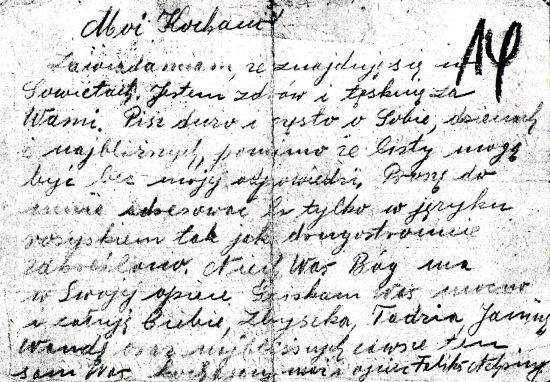 Moi Kochani
14
Zawiadamiam, że znajduję się w
Sowietach. Jestem zdrów i tęsknię za
Wami. Pisz dużo i często o Sobie, dzieciach
i najbliższych, pomimo że listy mogą
być bez mojej odpowiedzi. Proszę do
mnie adresować tylko w języku
rosyjskiem tak jak drugostronnie
zakreślono. Niech Was Bóg ma
w Swojej opiece. Ściskam Was mocno
i całuję Ciebie, Zbyszka, Tadzia, Janinę
Wandę oraz najbliższych zawsze ten
sam Was kochający mąż i ojciec Feliks